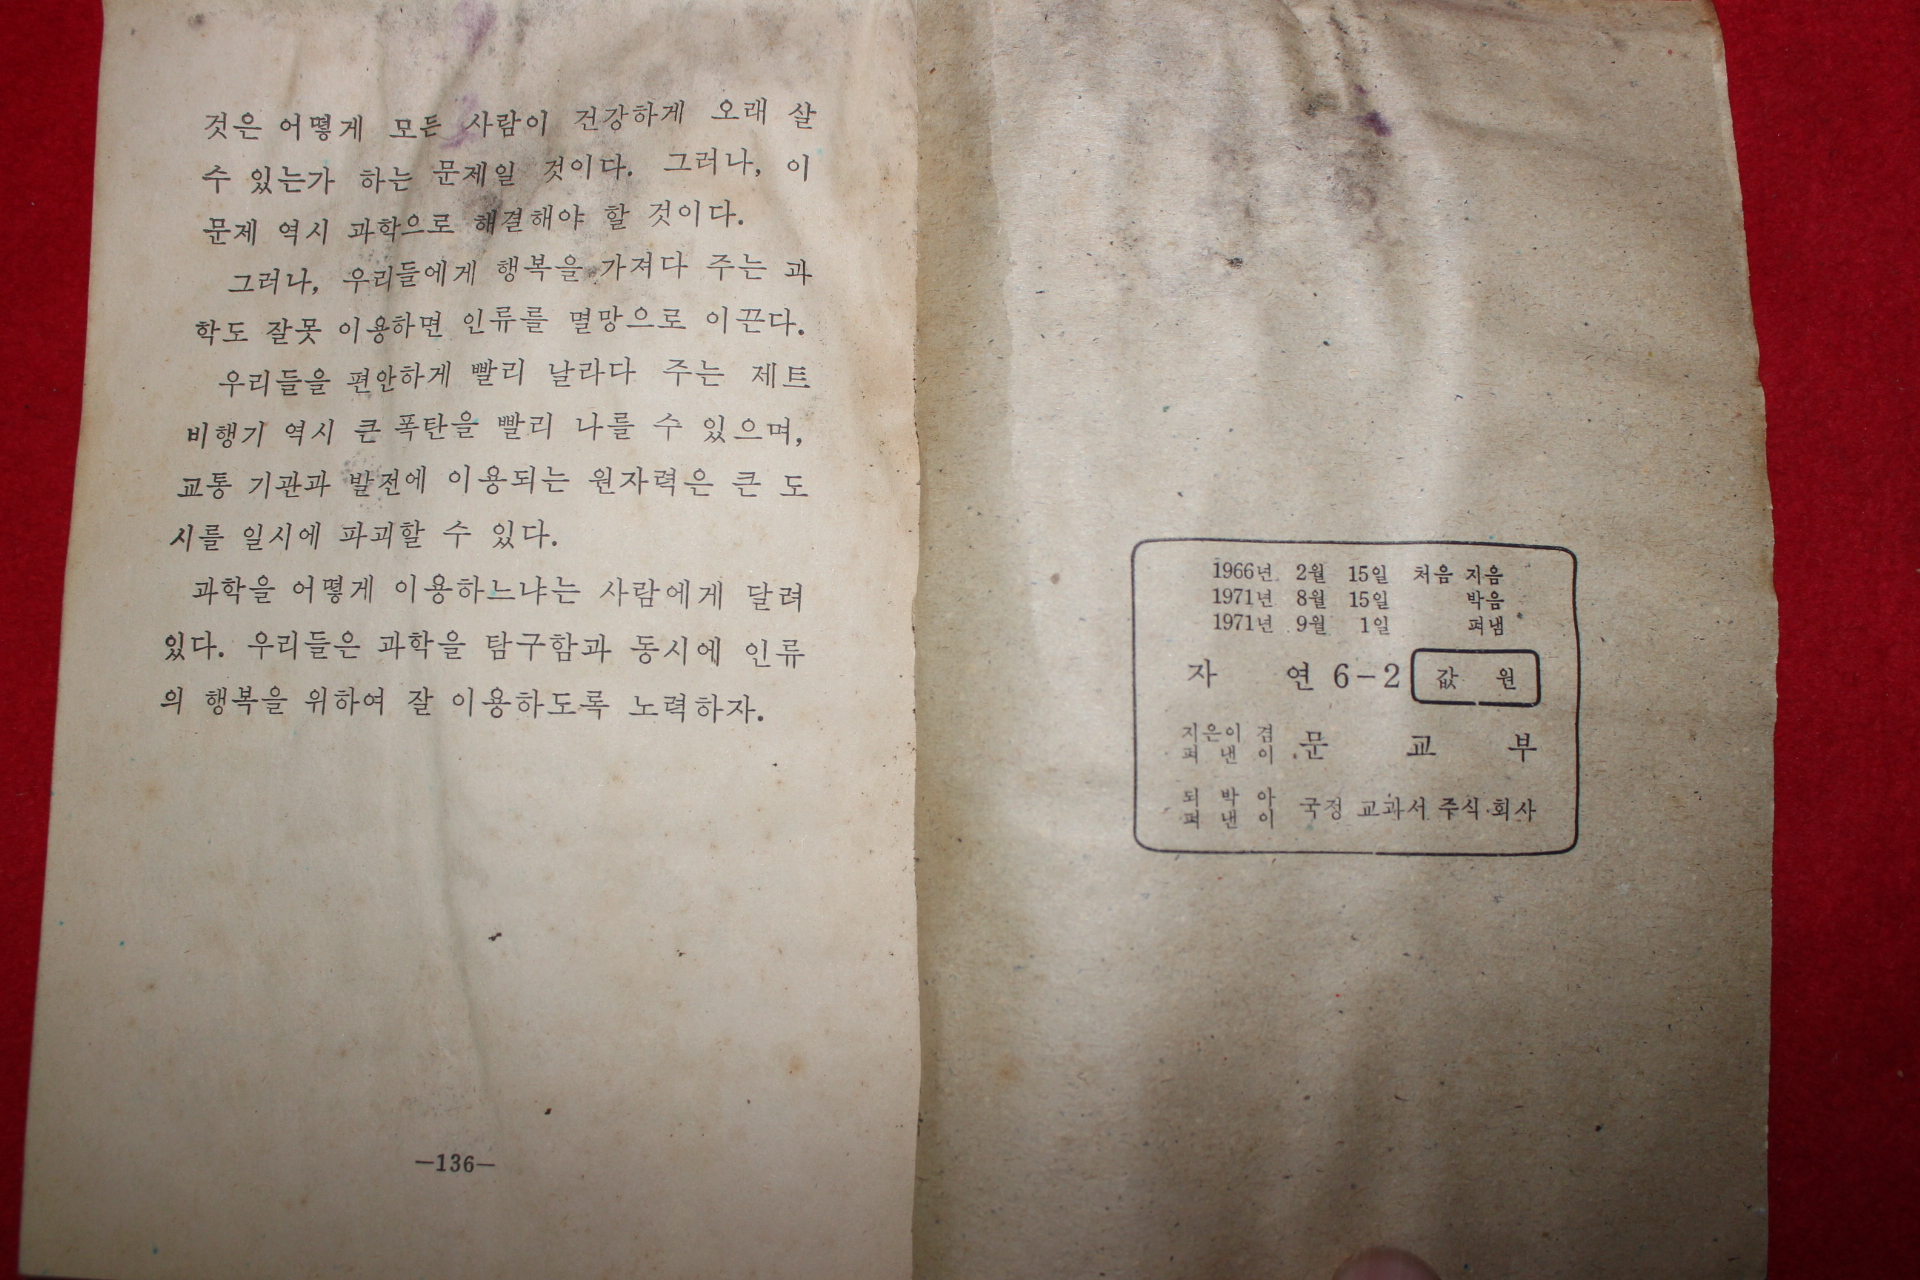 것은 어떻게 모든 사람이 건강하게 오래 살
수 있는가 하는 문제일 것이다. 그러나, 이
문제 역시 과학으로 해결해야 할 것이다.
그러나, 우리들에게 행복을 가져다 주는 과
학도 잘못 이용하면 인류를 멸망으로 이끈다.
우리들을 편안하게 빨리 날라다 주는 제트
비행기 역시 큰 폭탄을 빨리 나를 수 있으며,
교통 기관과 발전에 이용되는 원자력은 큰 도
시를 일시에 파괴할 수 있다.
과학을 어떻게 이용하느냐는 사람에게 달려
있다. 우리들은 과학을 탐구함과 동시에 인류
의 행복을 위하여 잘 이용하도록 노력하자.
—136—
1966년 2월 15일 처음 지음
1971년 8월 15일 박음
1971년 9월 1일 펴냄
자 연 6-2 값 원
지은이 겸
펴 낸 이 문 교 부
되 박 아
펴 낸 이 국정 교과서 주식 회사